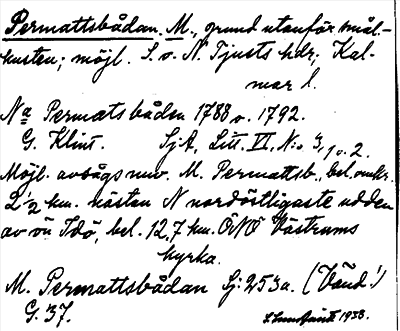 Permattsbådan. M., grund utanför smål.-
kusten; möjl. S. o. N. Tjusts hdr; Kal-
mar l.
Na Permats båden 1788 o. 1792.
G. Klint. SjA, Litt. VI, No 3, 1 o. 2.
Möjl. avsågs nuv. M. Permattsb., bel. omkr.
2 1/2 km. nästan N nordöstligaste udden
av ön Idö, bel. 12,7 km. ÖNÖ Västrums
kyrka.
M. Permattsbådan Sj: 253a. (Vänd!)
G. 37. 1938.